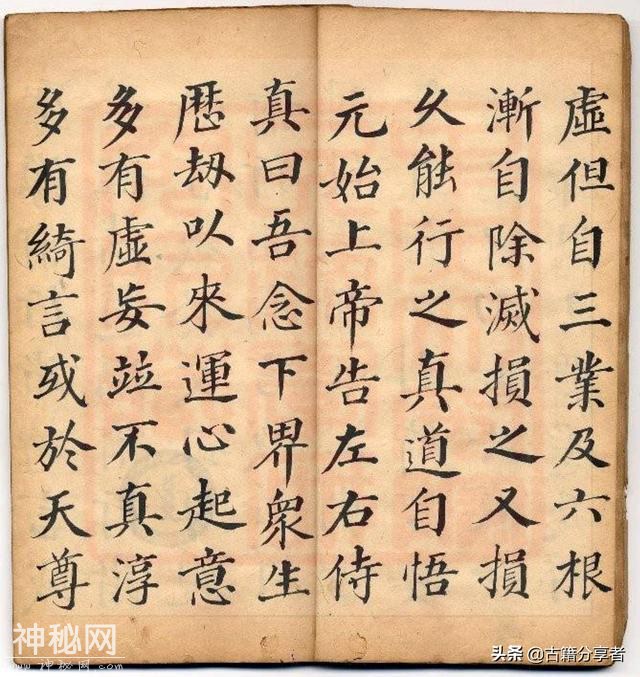 虛但自三業及六根
漸自除滅損之又損
久能行之真道自悟
元始上帝告左右侍
真曰吾念下界眾生
歷劫以來運心起意
多有虛妄並不真淳
多有綺言或於天尊
神秘网
www.神秘网.com
头条 @古籍分享者